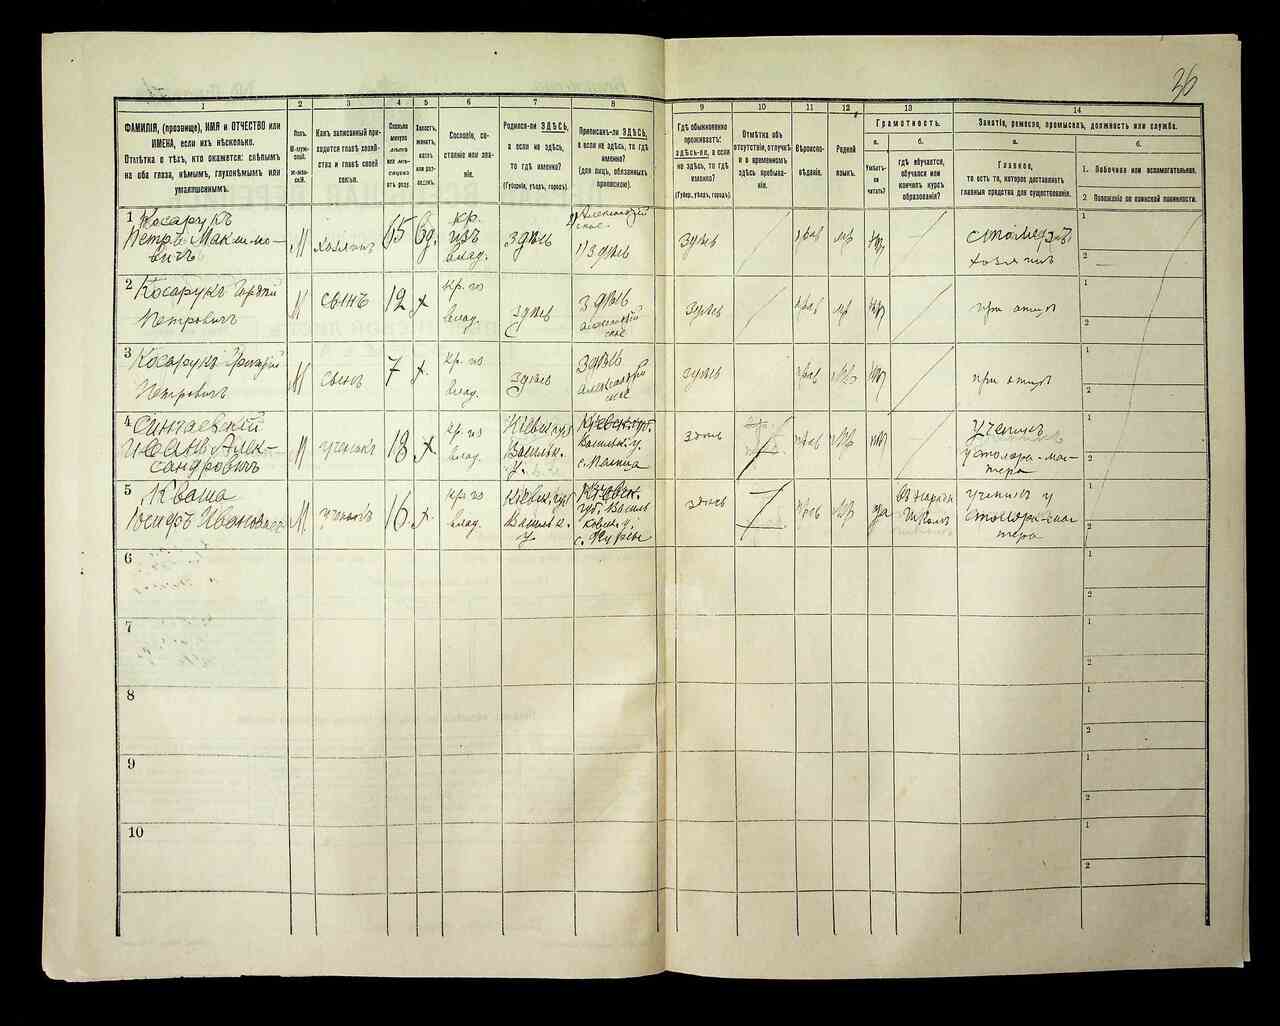 36
1
2
3
4
5
6
7
8
9
10
11
12
13
14
ФАМИЛІЯ, (прозвище), ИМЯ и ОТЧЕСТВО или
ИМЕНА, если ихъ нѣсколько.
Отмѣтка о тѣхъ, кто окажется: слѣпымъ
на оба глаза, нѣмымъ, глухонѣмымъ или
умалишеннымъ.
Полъ.
Какъ записанный при-
ходится главѣ хозяй-
ства и главѣ своей
семьи.
Сколько
минуло
лѣтъ
Холостъ,
женатъ,
вдовъ
или раз-
веденъ.
Сословіе, со-
стояніе или зва-
ніе.
Родился-ли ЗДѢСЬ,
а если не здѣсь,
то гдѣ именно?
(Губернія, уѣздъ, городъ).
Приписанъ-ли ЗДѢСЬ,
а если не здѣсь, то гдѣ
именно?
(для лицъ, обязанныхъ
припискою).
Гдѣ обыкновенно
проживаетъ:
ЗДѢСЬ-ЛИ, а если
не здѣсь, то гдѣ
именно?
(Губер., уѣздъ, городъ).
Отмѣтка объ
отсутствіи, отлучкѣ
и о временномъ
здѣсь пребыва-
ніи.
Вѣроиспо-
вѣданіе.
Родной
языкъ.
Грамотность.
а.
Умѣетъ-
ли
читать?
б.
гдѣ обучается,
обучался или
кончилъ курсъ
образованія?
Занятіе, ремесло, промыселъ, должность или служба.
а.
Главное,
то есть то, которое доставляетъ
главныя средства для существованія.
б.
1. Побочное или вспомогательное.
2 Положеніе по воинской повинности.
1 Косарукъ
Петръ Макимо-
вичъ
М
хозяинъ
65
вд.
кр.
изъ
влад.
здѣсь
здѣсь
здѣсь
прав
мр
1
2
2 Косарукъ
Петровичъ
М
сынъ
12
х
кр. из
влад.
здѣсь
здѣсь
здѣсь
прав
мр
при отцѣ
1
2
3 Косарукъ
Петровичъ
М
сынъ
7
х
кр. из
влад.
здѣсь
здѣсь
здѣсь
прав
мр
при отцѣ
1
2
4
Иванъ Алек-
сандровичъ
М
ученикъ
18
х
кр. из
влад.
Кіевск. губ
Васильк.
у.
Кіевск. губ.
Васильк. у.
здѣсь
прав
мр
ученикъ
у столяра-мас-
тера
1
2
5 Кваша
Іосифъ Ивановичъ
М
ученикъ
16
х
кр. из
влад.
Кіевск. губ
Васильк.
у
Кіевск.
губ. Василь
ковск. у.
здѣсь
прав
мр
да
въ народн
школѣ
ученикъ у
столяра-мас-
тера
1
2
6
1
2
7
1
2
8
1
2
9
1
2
10
1
2